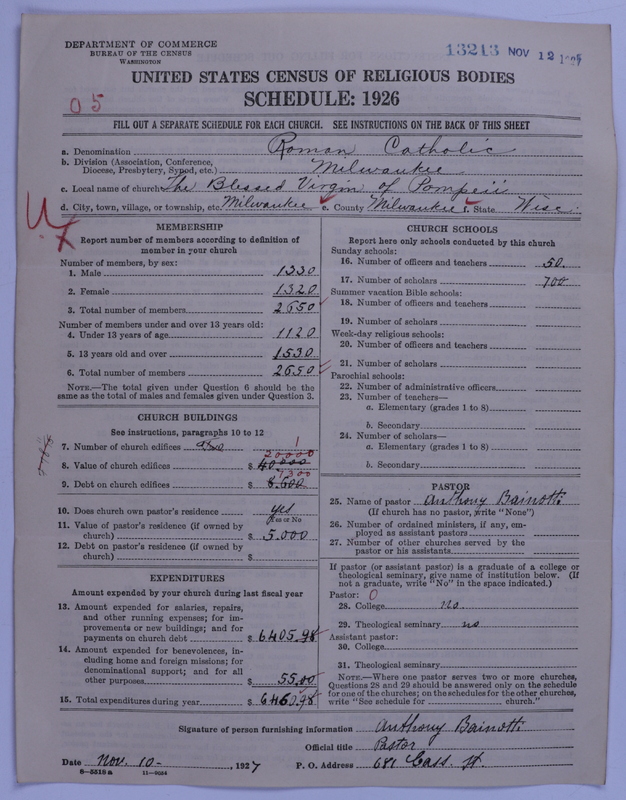 DEPARTMENT OF COMMERCE
BUREAU OF THE CENSUS
WASHINGTON
13213 NOV 12 1927
UNITED STATES CENSUS OF RELIGIOUS BODIES
SCHEDULE: 1926
05
FILL OUT A SEPARATE SCHEDULE FOR EACH CHURCH. SEE INSTRUCTIONS ON THE BACK OF THIS SHEET
a. Denomination Roman Catholic
b. Division (Association, Conference, Diocese, Presbytery, Synod, etc.) Milwaukee
c. Local name of church The Blessed Virgin of Pompeii
d. City, town, village, or township, etc. Milwaukee e. County Milwaukee f. State Wisc.
MEMBERSHIP
Report number of members according to definition of
member in your church
Number of members, by sex:
1. Male 1330
2. Female 1320
3. Total number of members 2650
Number of members under and over 13 years old:
4. Under 13 years of age 1120
5. 13 years old and over 1530
6. Total number of members 2650
NOTE.—The total given under Question 6 should be
the same as the total of males and females given under Question 3.
CHURCH BUILDINGS
See instructions, paragraphs 10 to 12
7. Number of church edifices 1
20,000
8. Value of church edifices $ 40000
7300
9. Debt on church edifices $ 8.600
10. Does church own pastor's residence yes
Yes or No
11. Value of pastor's residence (if owned by
church) $ 5.000
12. Debt on pastor's residence (if owned by
church) $
EXPENDITURES
Amount expended by your church during last fiscal year
13. Amount expended for salaries, repairs,
and other running expenses; for im-
provements or new buildings; and for
payments on church debt $ 6405.98
14. Amount expended for benevolences, in-
cluding home and foreign missions; for
denominational support; and for all
other purposes $ 55.00
15. Total expenditures during year $ 6460.98
CHURCH SCHOOLS
Report here only schools conducted by this church
Sunday schools:
16. Number of officers and teachers 50.
17. Number of scholars 700
Summer vacation Bible schools:
18. Number of officers and teachers
19. Number of scholars
Week-day religious schools:
20. Number of officers and teachers
21. Number of scholars
Parochial schools:
22. Number of administrative officers
23. Number of teachers—
a. Elementary (grades 1 to 8)
b. Secondary
24. Number of scholars—
a. Elementary (grades 1 to 8)
b. Secondary
PASTOR
25. Name of pastor Anthony Bainotti
(If church has no pastor, write "None")
26. Number of ordained ministers, if any, em-
ployed as assistant pastors
27. Number of other churches served by the
pastor or his assistants
If pastor (or assistant pastor) is a graduate of a college or
theological seminary, give name of institution below. (If
not a graduate, write "No" in the space indicated.)
Pastor: 0
28. College no
29. Theological seminary no
Assistant pastor:
30. College
31. Theological seminary
NOTE.—Where one pastor serves two or more churches,
Questions 28 and 29 should be answered only on the schedule
for one of the churches; on the schedules for the other churches,
write "See schedule for church."
Signature of person furnishing information Anthony Bainotti
Official title Pastor
Date Nov. 10-, 1927 P. O. Address 681 Cass. St.
8—5518a 11—9034